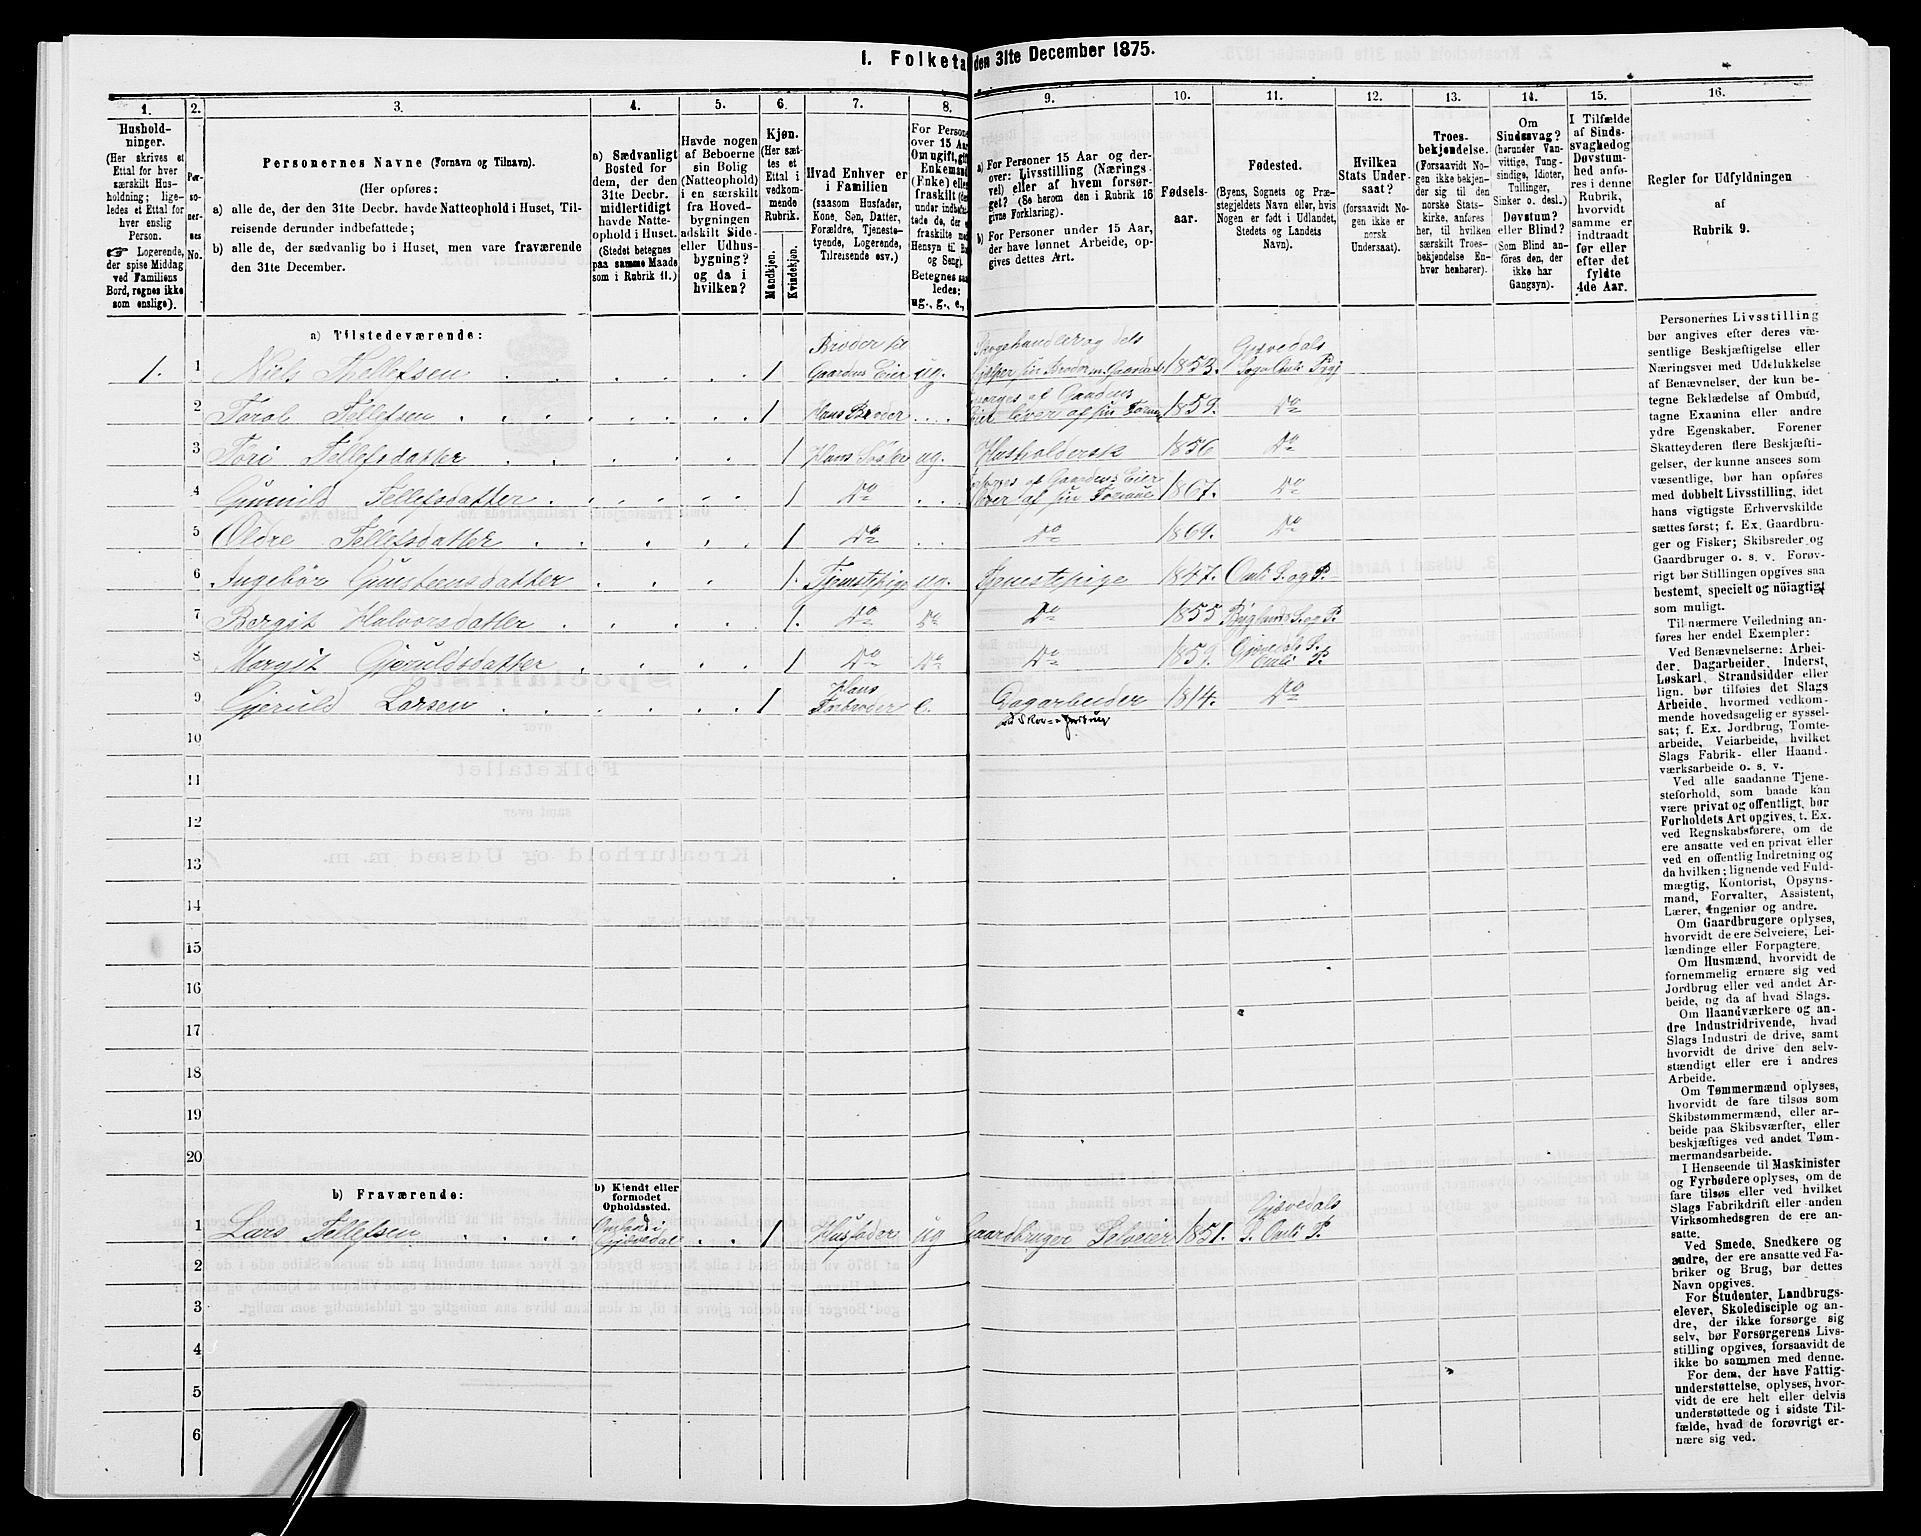 1. Folketa den 31te December 1875.
1. 2. 3. 4. 5. 6. 7. 8. 9. 10. 11. 12. 13. 14. 15. 16.
Hushold-
ninger.
(Her skrives et
Ettal for hver
særskilt Hus-
holdning; lige-
ledes et Ettal for
hver enslig
Person.
☞ Logerende,
der spise Middag
ved Familiens
Bord, regnes ikke
som enslige).
Per-
so-
ner-
nes
No.
Personernes Navne (Fornavn og Tilnavn).
(Her opføres:
a) alle de, der den 31te Decbr. havde Natteophold i Huset, Til-
reisende derunder indbefattede;
b) alle de, der sædvanlig bo i Huset, men vare fraværende
den 31te December.
a) Sædvanligt
Bosted for
dem, der den
31te Decbr.
midlertidigt
havde Natte-
ophold i Huset.
(Stedet betegnes
paa samme Maade
som i Rubrik 11.)
Havde nogen
af Beboerne
sin Bolig
(Natteophold)
i en særskilt
fra Hoved-
bygningen
adskilt Side-
eller Udhus-
bygning?
og da i
hvilken?
Kjøn.
(Her sæt-
tes et
Ettal i
vedkom-
mende
Rubrik.
Mandkjøn.
Kvindekjøn.
Hvad Enhver er
i Familien
(saasom Husfader,
Kone, Søn, Datter,
Forældre, Tjeneste-
tyende, Logerende,
Tilreisende osv.)
For Persone
over 15 Aar
Om ugift, gift
Enkemand
(Enke) eller
fraskilt
Betegnes saa
ledes:
ug., g., e.,
a) For Personer 15 Aar og der-
over: Livsstilling (Nærings-
vei) eller af hvem forsør-
get? (Se herom den i Rubrik 16
givne Forklaring).
b) For Personer under 15 Aar,
der have lønnet Arbeide, op-
gives dettes Art.
Fødsels-
aar.
Fødested.
(Byens, Sognets og Præ-
stegjeldets Navn eller, hvis
Nogen er født i Udlandet,
Stedets og Landets
Navn).
Hvilken
Stats Under-
saat?
(forsaavidt No-
gen ikke er
norsk
Undersaat).
Troes-
bekjendelse.
(Forsaavidt No-
gen ikke bekjen-
der sig til den
norske Stats-
kirke, anføres
her, til hvilken
særskilt Troes-
bekjendelse En-
hver henhører).
Om
Sindssvag?
(herunder Van-
vittige, Tung-
sindige, Idioter,
Tullinger,
Sinker o. desl.)
Døvstum?
eller Blind?
(Som Blind an-
føres den, der
ikke har
Gangsyn).
I Tilfælde
af Sinds-
svaghed og
Døvstum-
hed anfø-
res i denne
Rubrik,
hvorvidt
samme er
indtraadt
før eller
efter det
fyldte
4de Aar.
Regler for Udfyldningen
af
Rubrik 9.
a) Tilstedeværende:
1. 1 Niels Thellefsen 1 Broder til Gaardens Eier ug. Skogshandler og dels 1853. Gjøvedals
2 Toral Tellefsen 1 Hans Broder 1859. Do
3 Tori Tellefsdatter 1 Hans Søster ug. Husholderske 1856 Do
4 Gunnild Tellefsdatter 1 Do forsørges af Gaardens Eier 1867. Do
5 Oldre Tellefsdatter 1 Do Do 1869. Do
6 Ingebör Gunsteensdatter 1. Tjenestepige ug. Tjenestepige 1847. Omli S. og P.
7 Bergit Halvorsdatter 1. Do Do Do 1855 Byglands S. og P.
8 Margit Gjeruldsdatter 1 Do Do Do 1859. Gjøvedals S. Omli P.
9 Gjeruld Larsen 1 Hans Farbroder e. Dagarbeider 1814. Do
10
11
12
13
14
15
16
17
18
19
20
b) Fraværende:
b) Kjendt eller
formodet
Opholdssted.
1 Lars Tellefsen Gjøvedal 1 Husfader ug Gaardbruger Selveier 1851. Gjøvedals S. Omli P.
2
3
4
5
6
Personernes Livsstilling
bør angives efter deres væ-
sentlige Beskjæftigelse eller
Næringsvei med Udelukkelse
af Benævnelser, der kun be-
tegne Beklædelse af Ombud,
tagne Examina eller andre
ydre Egenskaber. Forener
Skatteyderen flere Beskjæfti-
gelser, der kunne ansees som
væsentlige, bør han opføres
med dobbelt Livsstilling, idet
hans vigtigste Erhvervskilde
sættes først; f. Ex. Gaardbru-
ger og Fisker; Skibsreder og
Gaardbruger o. s. v. Forøv-
rigt bør Stillingen opgives saa
bestemt, specielt og nöiagtigt
som muligt.
Til nærmere Veiledning an-
føres her endel Exempler:
Ved Benævnelserne: Arbei-
der, Dagarbeider, Inderst,
Løskarl, Strandsidder eller
lign. bør tilføies det Slags
Arbeide, hvormed vedkom-
mende hovedsagelig er syssel-
sat; f. Ex. Jordbrug, Tomte-
arbeide, Veiarbeide, hvilket
Slags Fabrik- eller Haand-
værksarbeide o. s. v.
Ved alle saadanne Tjene-
steforhold, som baade kan
være privat og offentligt, bør
Forholdets Art opgives, t. Ex.
ved Regnskabsførere, om de
ere ansatte ved en privat eller
ved en offentlig Indretning og
da hvilken; lignende ved Fuld-
mægtig, Kontorist, Opsyns-
mand, Forvalter, Assistent,
Lærer, Ingeniør og andre.
Om Gaardbrugere oplyses,
hvorvidt de ere Selveiere, Lei-
lændinge eller Forpagtere.
Om Husmænd, hvorvidt de
fornemmelig ernære sig ved
Jordbrug eller ved andet Ar-
beide, og da af hvad Slags.
Om Haandværkere og an-
dre Industridrivende, hvad
Slags Industri de drive, samt
hvorvidt de drive den selv-
stændigt eller ere i andres
Arbeide.
Om Tømmermænd oplyses,
hvorvidt de fare tilsøs som
Skibstømmermænd, eller ar-
beide paa Skibsværfter, eller
beskjæftiges ved andet Tøm-
mermandsarbeide.
I Henseende til Maskinister
og Fyrbødere oplyses, om de
fare tilsøs eller ved hvilket
Slags Fabrikdrift eller anden
Virksomhedsgren de ere an-
satte.
Ved Smede, Snedkere og
andre, der ere ansatte ved Fa-
briker og Brug, bør dettes
Navn opgives.
For Studenter, Landbrugs-
elever, Skoledisciple og an-
dre, der ikke forsørge sig
selv, bør Forsørgerens Livs-
stilling opgives, forsaavidt de
ikke bo sammen med denne.
For dem, der have Fattig-
understøttelse, oplyses, hvor-
vidt de ere helt eller delvis
understøttede og i sidste Til-
fælde, hvad de forøvrigt er-
nære sig ved.